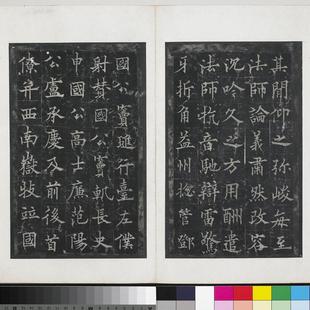 其閒仰之弥峻每至
法師論義肅然改容
沉吟久之方用酬遣
法師抗音馳辯雷驚
牙折角益州揔管鄧
國公竇璡行臺左僕
射贊國公竇軌長史
申國公高士廉范陽
公盧承慶及前後首
僚并西南嶽牧竝國